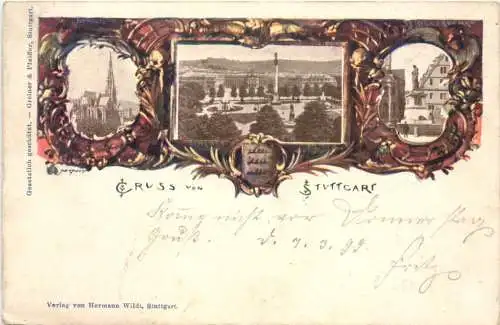 Gesetzlich geschützt. — Greiner & Pfeiffer, Stuttgart.
GRUSS VON STUTTGART
nicht vor Donnerstag
Gruß. d. 9.3.99.
Fritz
Verlag von Hermann Wildt, Stuttgart.